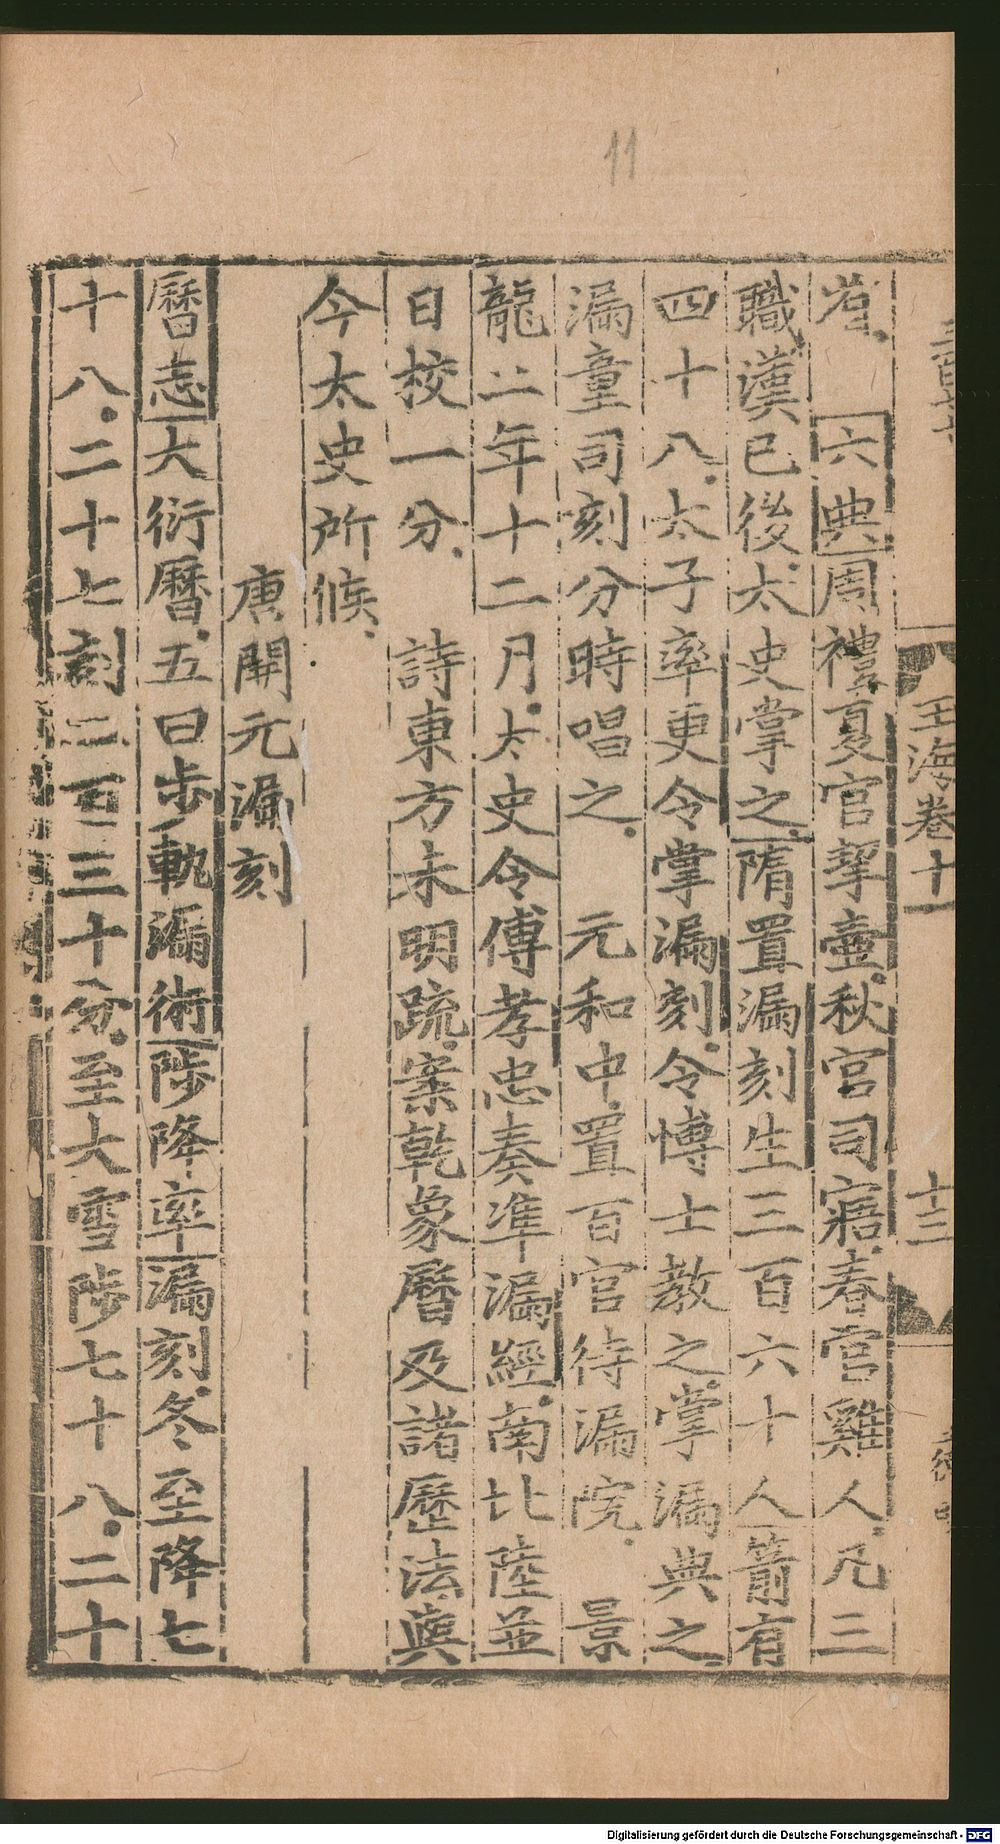 11
岩 六典周禮夏官挈壷秋官司寤春官雞人凡三
職漢已後太史掌之隋置漏刻生三百六十人箭有
四十八太子率更令掌漏刻令博士教之掌漏典之
漏童司刻分時唱之 元和中置百官待漏院 景
龍二年十二月太史令傅孝忠奏準漏經南北陸並
日校一分 詩東方未明疏案乾象曆及諸歷法與
今太史所候
唐開元漏刻
曆志大衍曆五曰步軌漏術陟降率漏刻冬至降七
十八二十七刻二百三十分至大雪陟七十八二十
玉海卷十一
十三
Digitalisierung gefördert durch die Deutsche Forschungsgemeinschaft - DFG